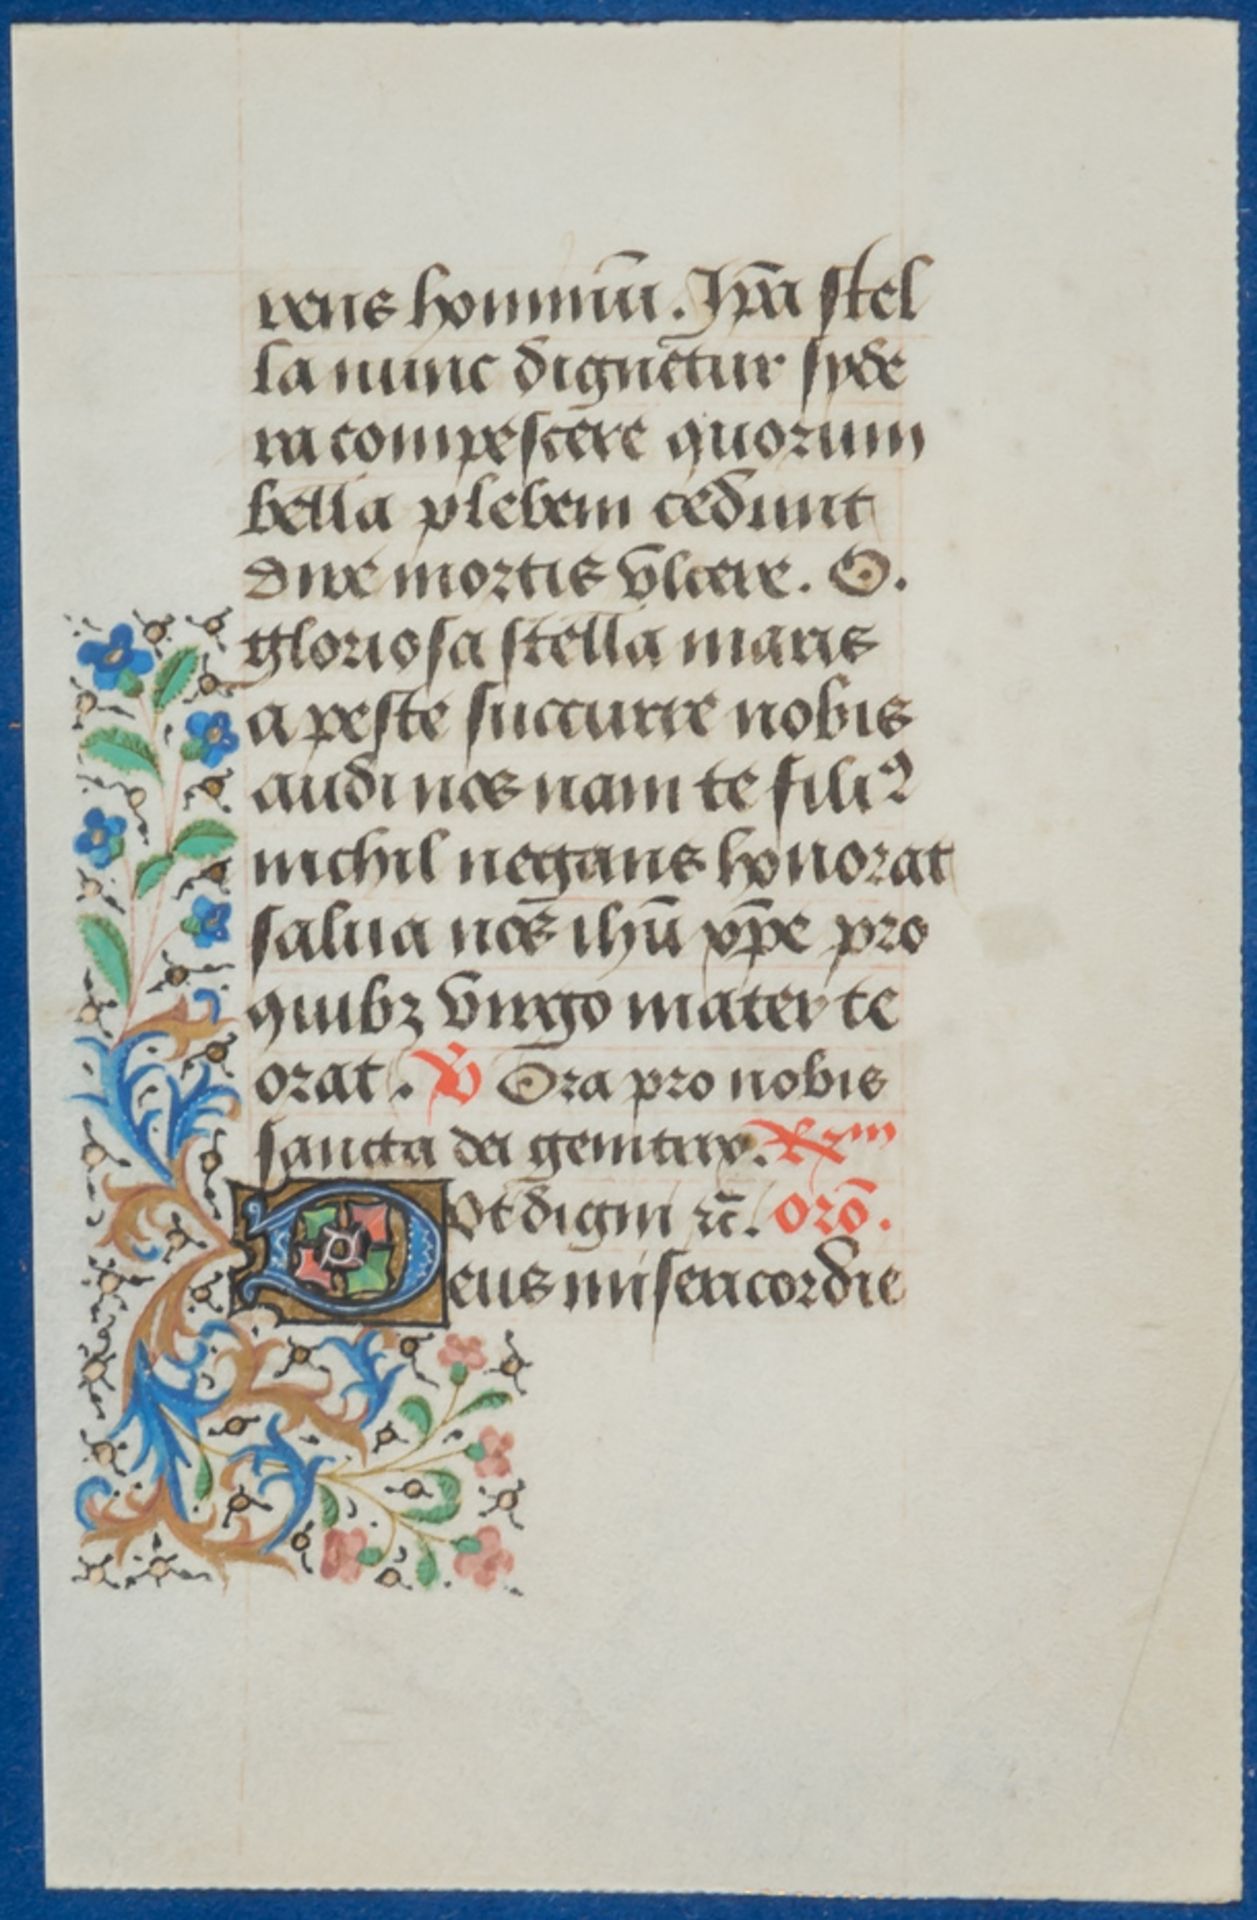 rens hominū. Ip̄a stel
la nunc dignetur syde
ra compescere quorum
bella plebem cedunt
dire mortis vlcere. O.
gloriosa stella maris
a peste succurre nobis
audi nos nam te filiꝰ
nichil negans honorat
salua nos ihū xp̄e pro
quibꝫ virgo mater te
orat. V Ora pro nobis
sancta dei genitrix. Rxm
Vt digni ⁊c̄. orō.
Deus misericordie